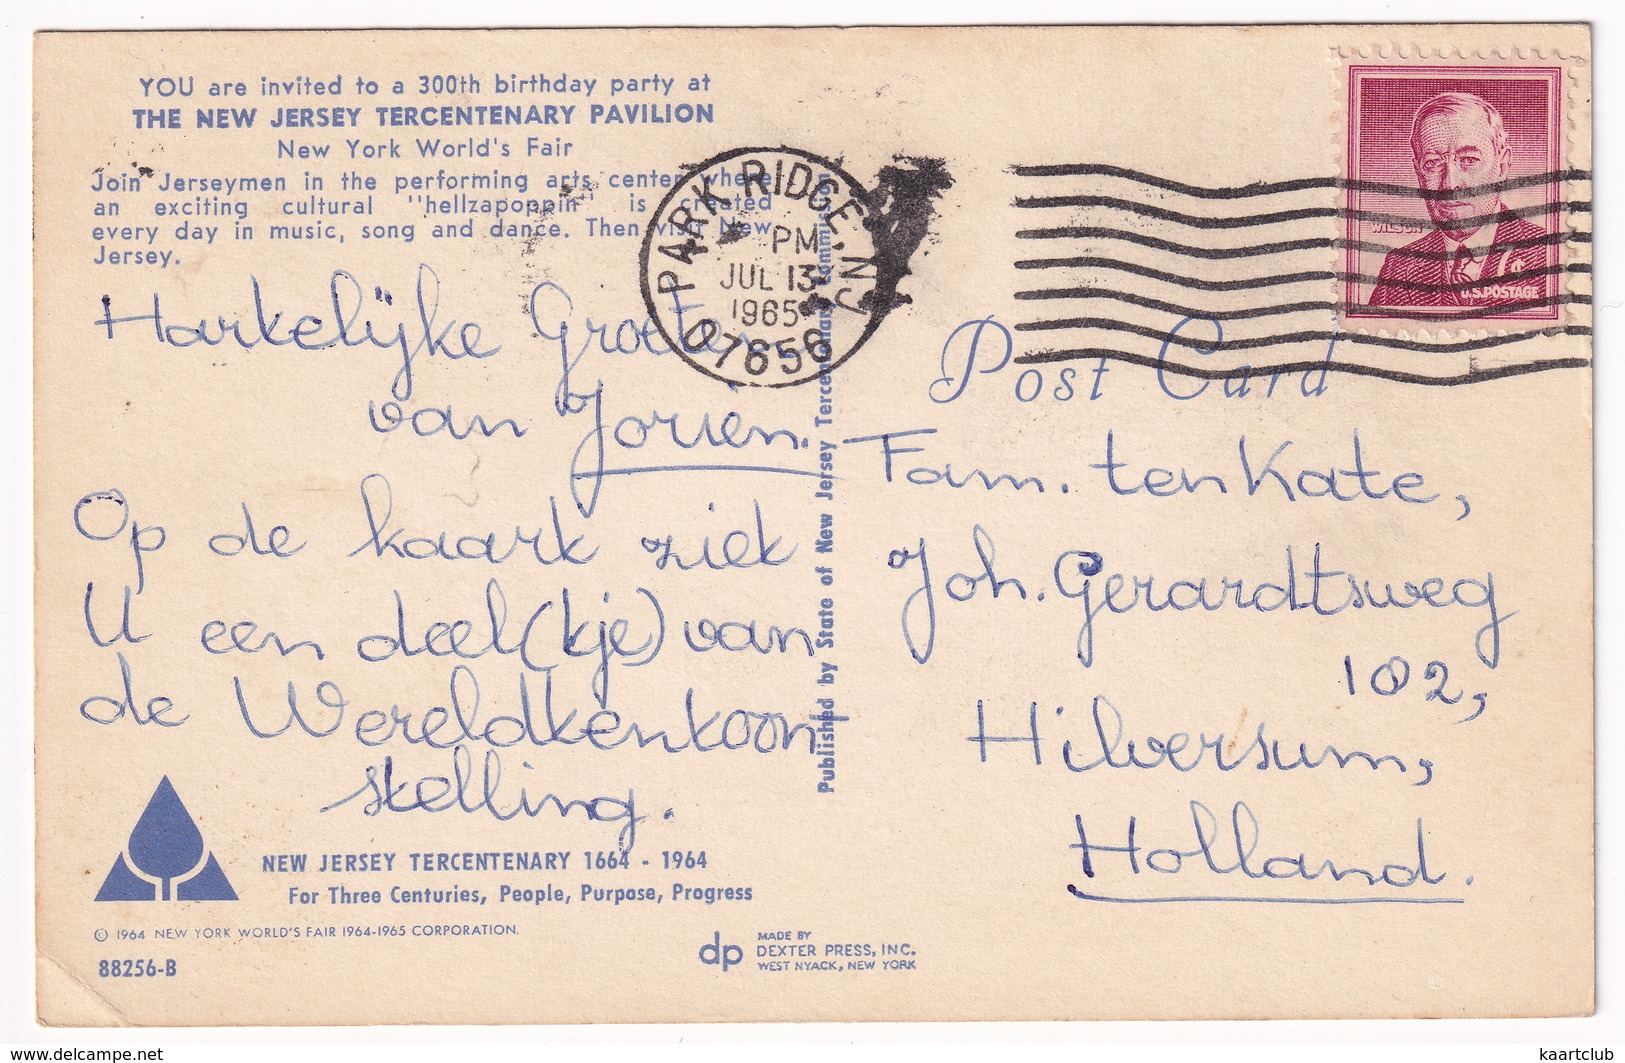 YOU are invited to a 300th birthday party at
THE NEW JERSEY TERCENTENARY PAVILION
New York World's Fair
Join Jerseymen in the performing arts center where
an exciting cultural "hellzapoppin" is created
every day in music, song and dance. Then visit New
Jersey.
Harkelijke Groeten
van Jorien.
Op de kaark ziek
U een deel(kje) van
de Wereldkenkoon
skelling.
NEW JERSEY TERCENTENARY 1664 - 1964
For Three Centuries, People, Purpose, Progress
© 1964 NEW YORK WORLD'S FAIR 1964-1965 CORPORATION.
88256-B
Published by State of New Jersey Tercentenary Commission
dp
MADE BY
DEXTER PRESS, INC.
WEST NYACK, NEW YORK
PARK RIDGE, NJ
PM
JUL 13
1965
07656
WILSON
7¢
U.S. POSTAGE
Post Card
Fam. ten Kate,
Joh. Gerardtsweg
102,
Hilversum,
Holland.
delcampe.net
kaartclub